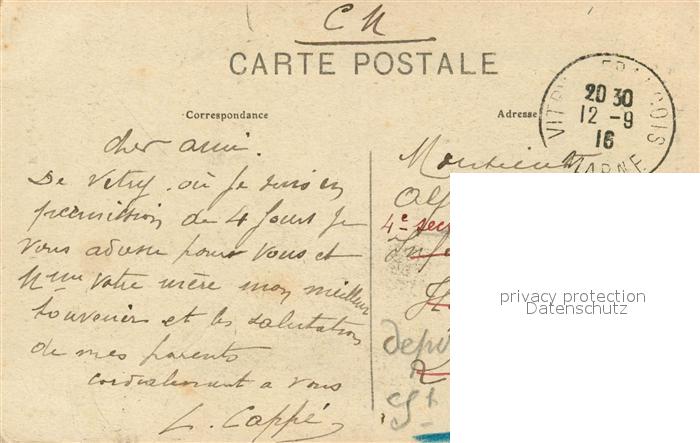 CN
CARTE POSTALE
Correspondance
Adresse
VITRY FRANCOIS
20 30
12 -9
16
MARNE
cher ami.
De Vitry où je suis en
permission de 4 jours je
vous adresse pour vous et
Mme votre mère mon meilleur
souvenir et les salutations
de mes parents
cordialement a vous
L. Cappé
Monsieur
4e sec
Inf
depu
St
privacy protection
Datenschutz